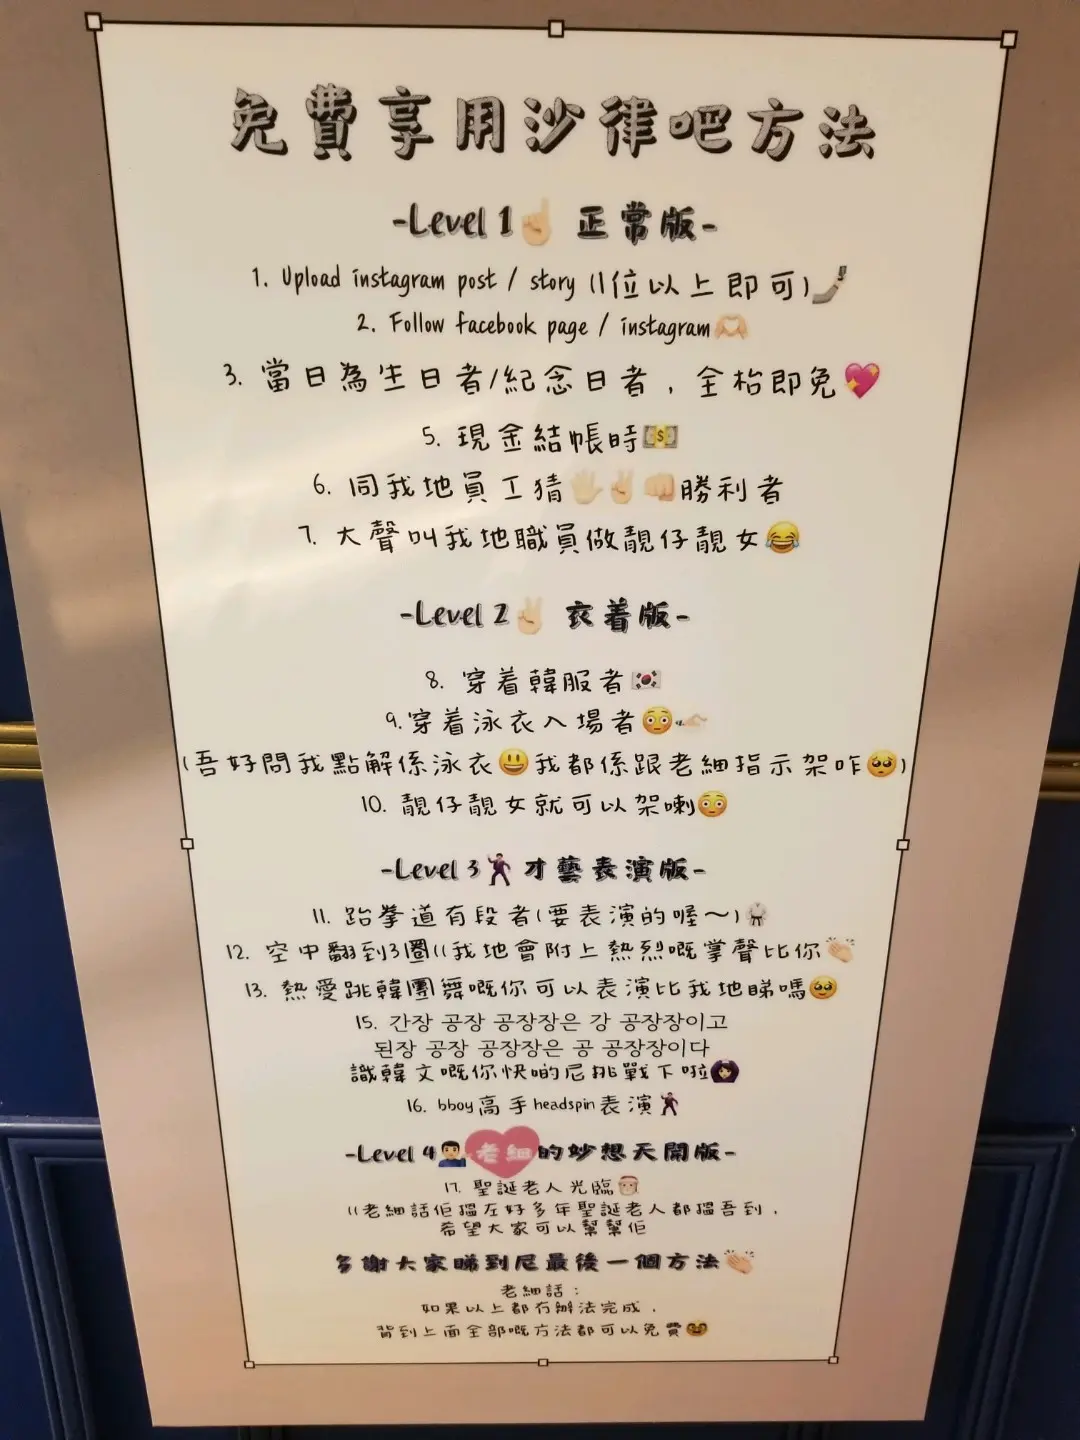 免費享用沙律吧方法
-Level 1☝🏻 正常版-
1. Upload instagram post / story (1位以上即可)🤳
2. Follow facebook page / instagram🫶🏻
3. 當日為生日者/紀念日者，全枱即免💖
5. 現金結帳時💵
6. 同我地員工猜🖐🏻✌🏻👊🏻勝利者
7. 大聲叫我地職員做靚仔靚女😂
-Level 2✌🏻 衣着版-
8. 穿着韓服者🇰🇷
9. 穿着泳衣入場者😳🫴🏻
(吾好問我點解係泳衣😃我都係跟老細指示架咋🥺)
10. 靚仔靚女就可以架喇😳
-Level 3🕺 才藝表演版-
11. 跆拳道有段者(要表演的喔～)🥋
12. 空中翻到3圈((我地會附上熱烈嘅掌聲比你👏🏻
13. 熱愛跳韓團舞嘅你可以表演比我地睇嗎🥺
15. 간장 공장 공장장은 강 공장장이고
된장 공장 공장장은 공 공장장이다
識韓文嘅你快啲尼挑戰下啦🙆🏻‍♀️
16. bboy高手headspin表演🕺
-Level 4💁🏻‍♂️老細的妙想天開版-
17. 聖誕老人光臨🎅🏻
((老細話佢搵左好多年聖誕老人都搵吾到，
希望大家可以幫幫佢
多謝大家睇到尼最後一個方法👏🏻
老細話：
如果以上都冇辦法完成，
背到上面全部嘅方法都可以免費🥸